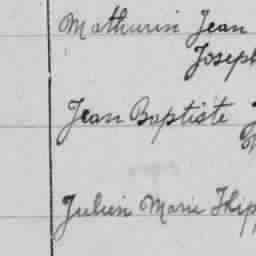 Mathurin Jean
Joseph
Jean Baptiste
Julien Marie Hip